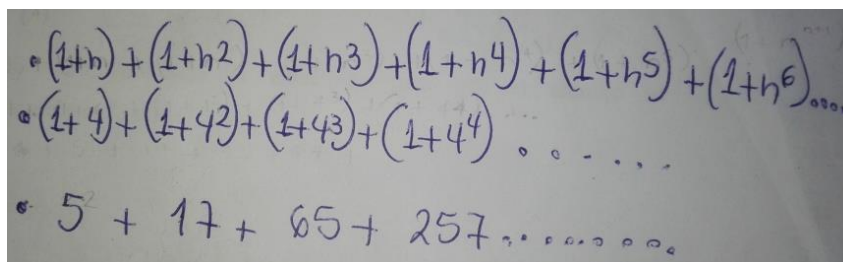 • (1+n) + (1+n2) + (1+n3) + (1+n4) + (1+n5) + (1+n6)....
• (1+4) + (1+42) + (1+43) + (1+4⁴) . . . . . .
• 5 + 17 + 65 + 257.........